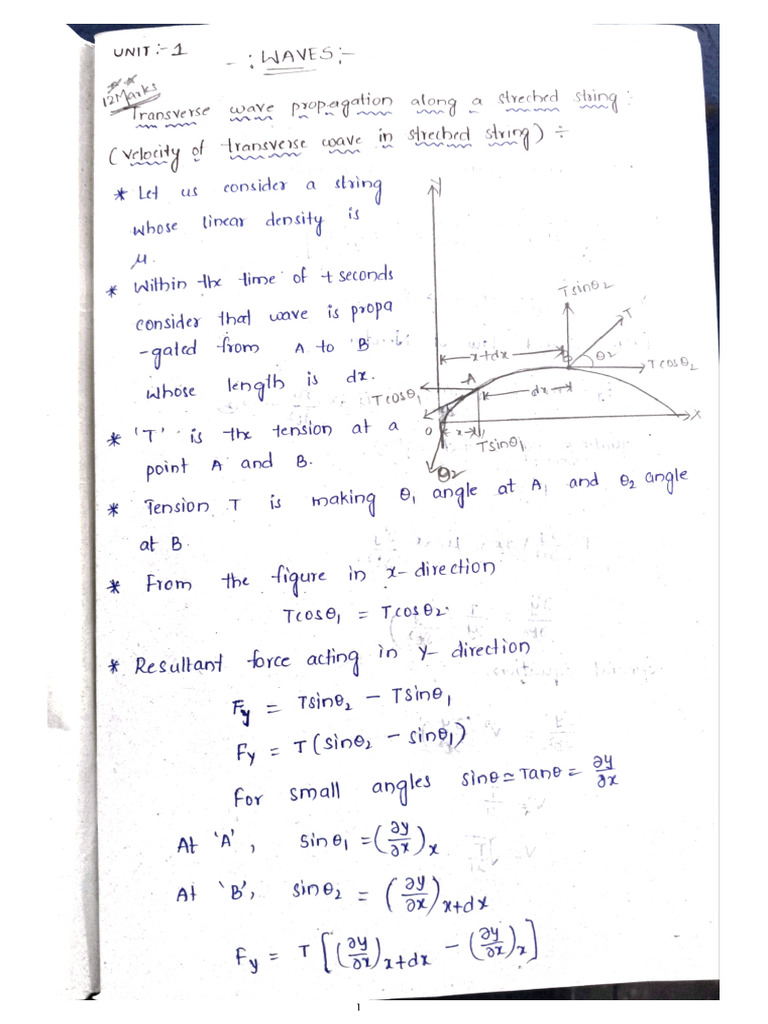 UNIT :- 1
-: WAVES :-
** 12Marks
Transverse wave propagation along a streched string :
(velocity of transverse wave in streched string) ÷
* Let us consider a string
whose linear density is
μ.
* Within the time of t seconds
consider that wave is propa
-gated from A to B
whose length is dx.
* 'T' is the tension at a
point A and B.
y
Tsinθ2
T
x+dx
B
θ2
Tcosθ2
A
Tcosθ1
dx
x
O
x
Tsinθ1
θ2
* Tension T is making θ1 angle at A, and θ2 angle
at B.
* From the figure in x-direction
Tcosθ1 = Tcosθ2.
* Resultant force acting in y- direction
Fy = Tsinθ2 - Tsinθ1
Fy = T(sinθ2 - sinθ1)
for small angles sinθ ≃ Tanθ = ∂y/∂x
At 'A', sinθ1 = (∂y/∂x)x
At 'B', sinθ2 = (∂y/∂x)x+dx
Fy = T[(∂y/∂x)x+dx - (∂y/∂x)x]
1